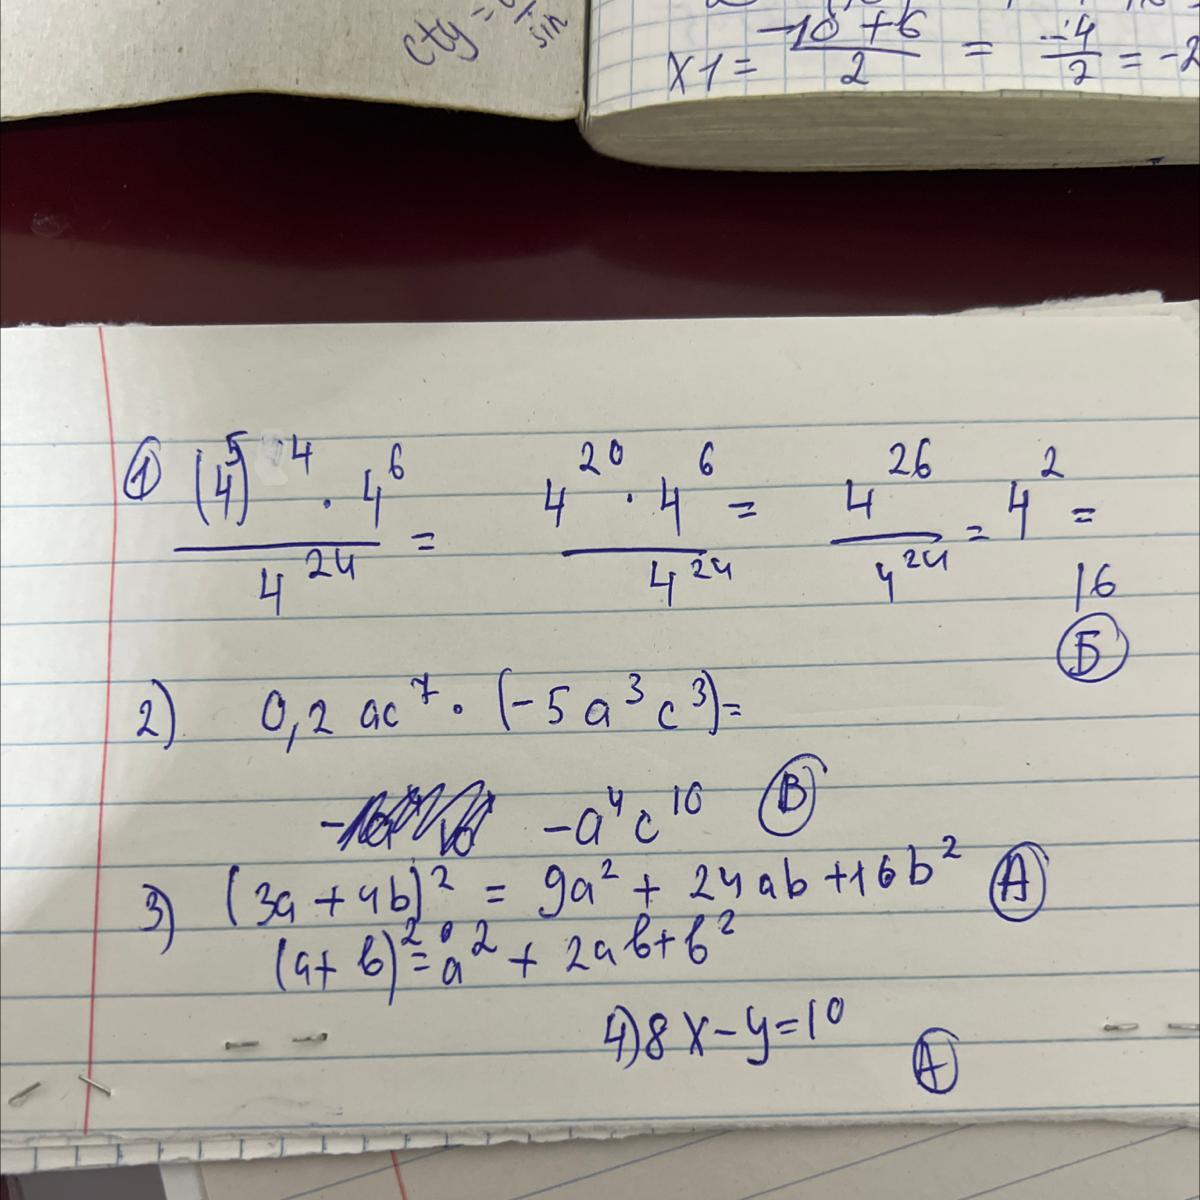 ctg =
sin
x1 = (-10 + 6)/2 = -4/2 = -2
① ((4⁵)⁴ · 4⁶)/4²⁴ = (4²⁰ · 4⁶)/4²⁴ = 4²⁶/4²⁴ = 4² =
16
Б
2) 0,2 ac⁷ · (-5a³c³) =
-a⁴c¹⁰ В
3) (3a + 4b)² = 9a² + 24ab + 16b² А
(a + b)² = a² + 2ab + b²
4) 8x - y = 10
А